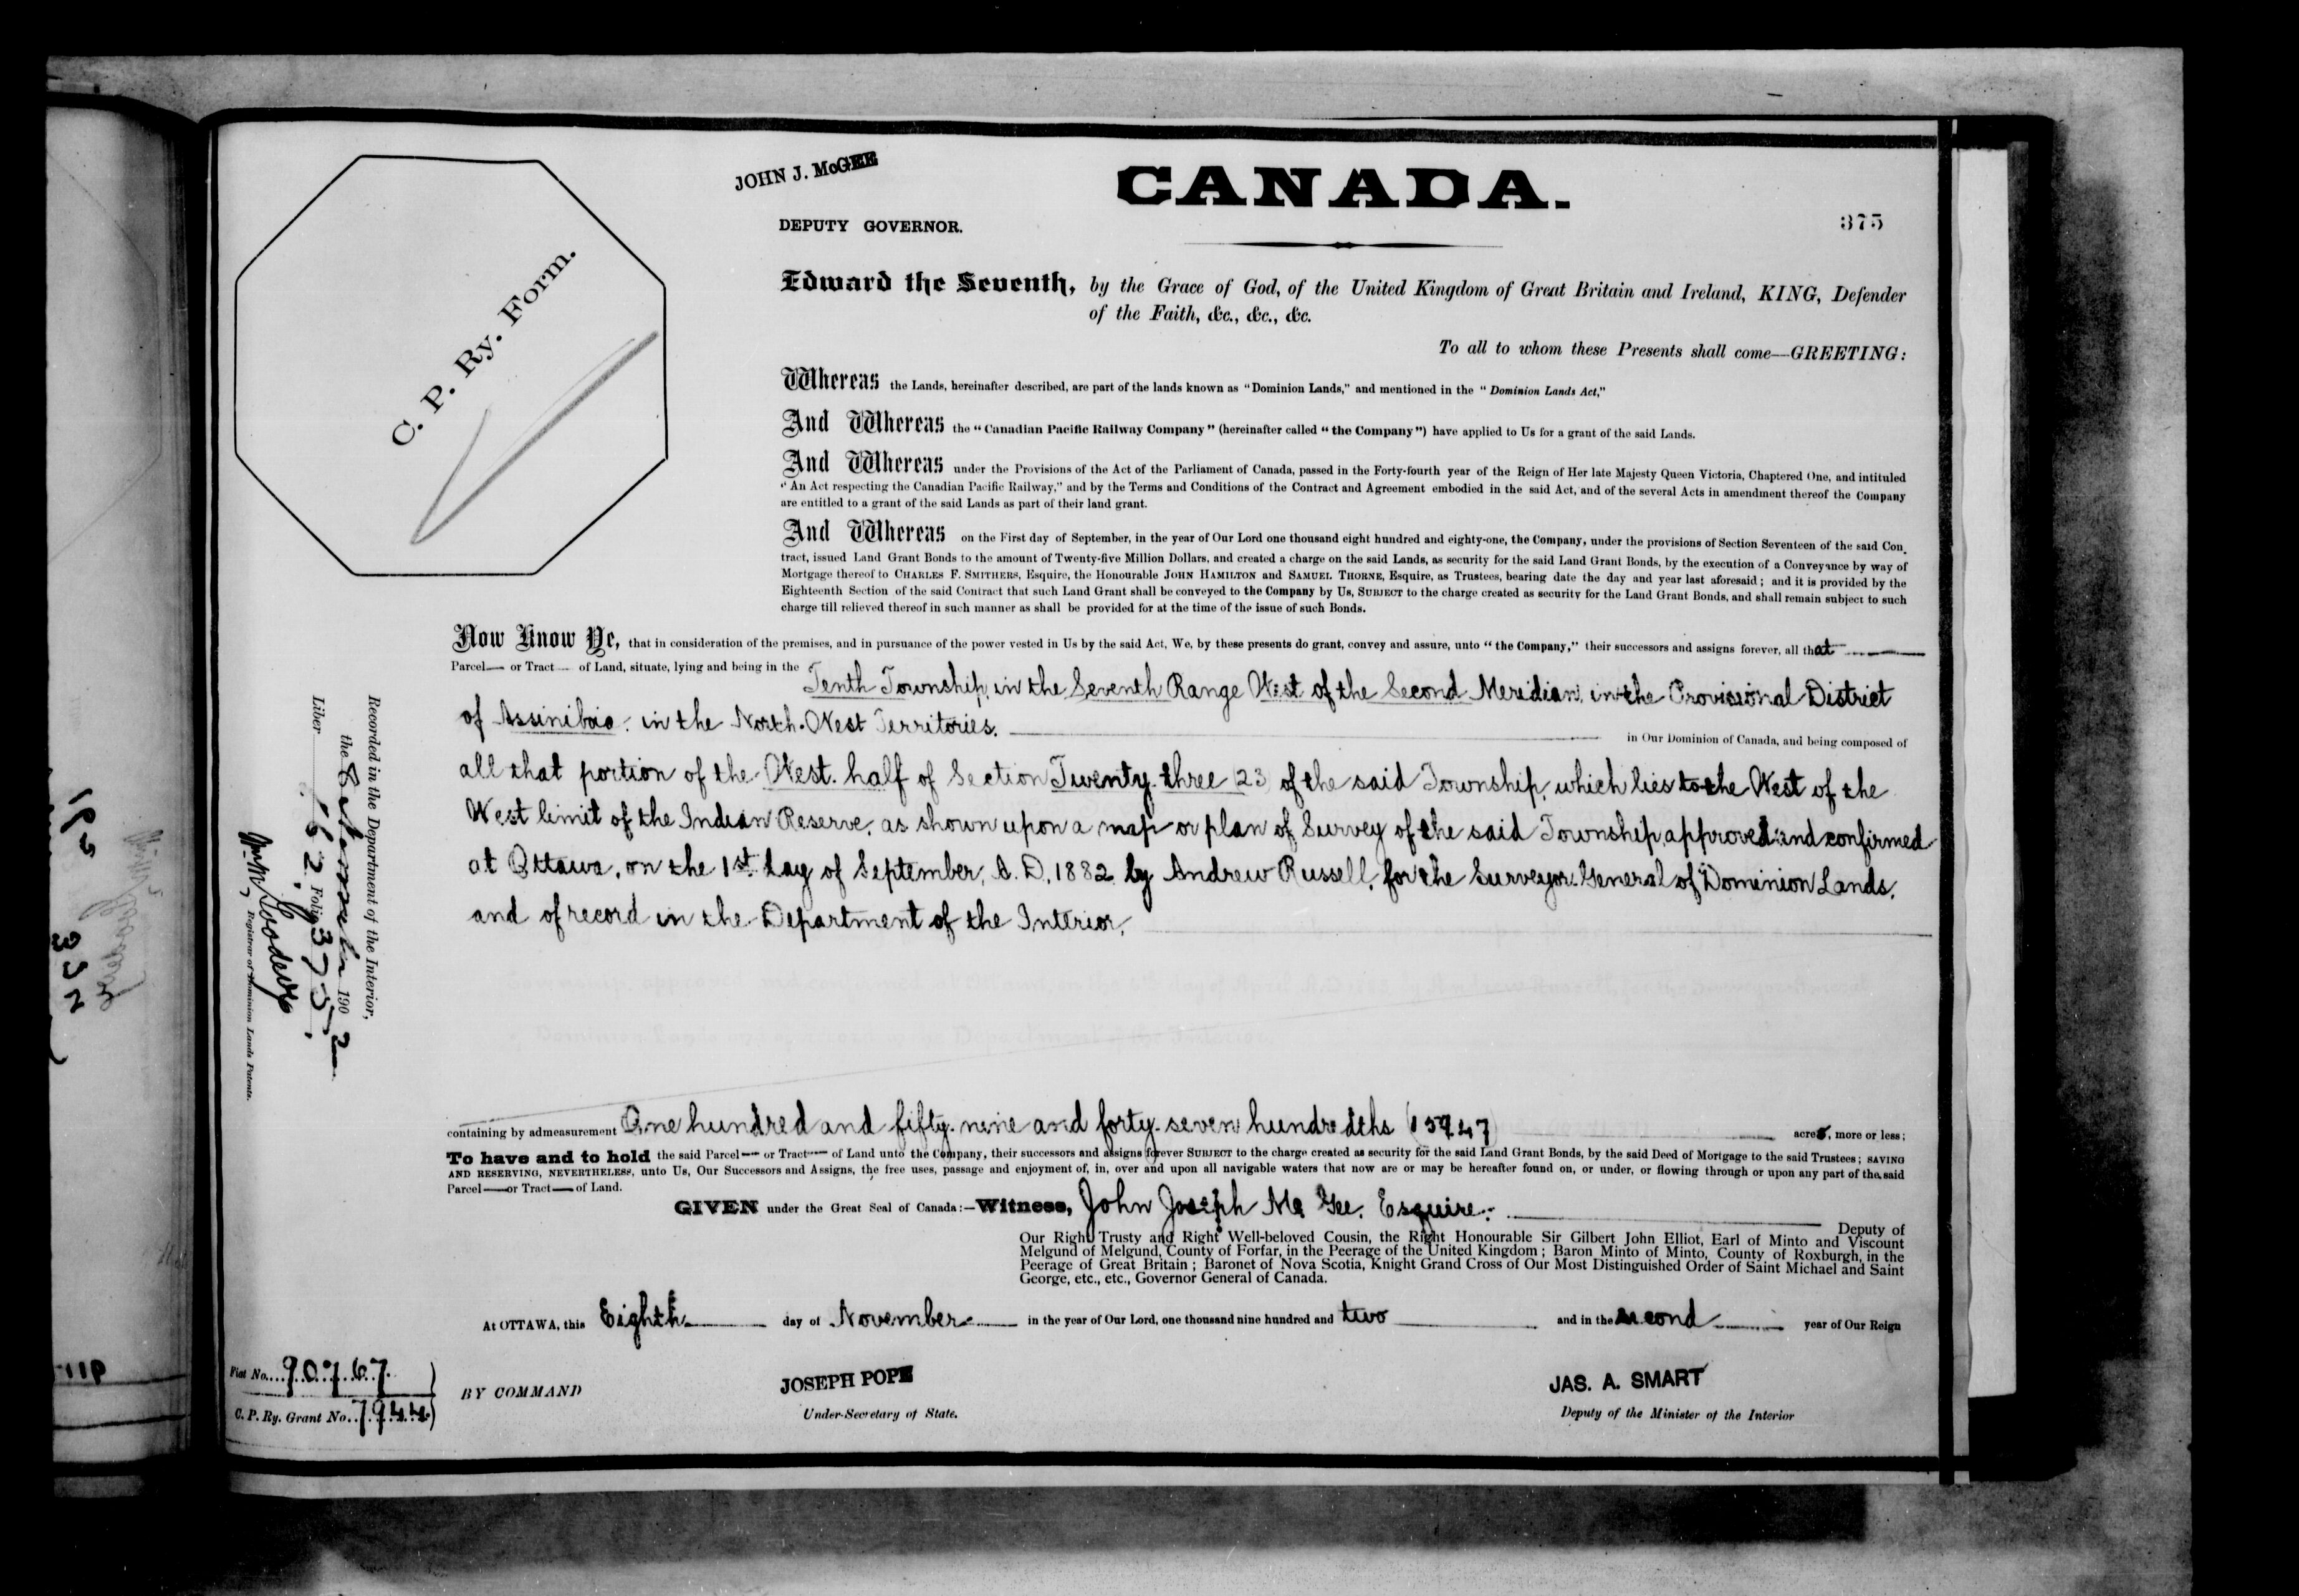 JOHN J. McGEE
CANADA.
DEPUTY GOVERNOR.
375
C. P. Ry. Form.
Edward the Seventh, by the Grace of God, of the United Kingdom of Great Britain and Ireland, KING, Defender
of the Faith, &c., &c., &c.
To all to whom these Presents shall come—GREETING:
Whereas the Lands, hereinafter described, are part of the lands known as "Dominion Lands," and mentioned in the "Dominion Lands Act,"
And Whereas the "Canadian Pacific Railway Company" (hereinafter called "the Company") have applied to Us for a grant of the said Lands.
And Whereas under the Provisions of the Act of the Parliament of Canada, passed in the Forty-fourth year of the Reign of Her late Majesty Queen Victoria, Chaptered One, and intituled
"An Act respecting the Canadian Pacific Railway," and by the Terms and Conditions of the Contract and Agreement embodied in the said Act, and of the several Acts in amendment thereof the Company
are entitled to a grant of the said Lands as part of their land grant.
And Whereas on the First day of September, in the year of Our Lord one thousand eight hundred and eighty-one, the Company, under the provisions of Section Seventeen of the said Con-
tract, issued Land Grant Bonds to the amount of Twenty-five Million Dollars, and created a charge on the said Lands, as security for the said Land Grant Bonds, by the execution of a Conveyance by way of
Mortgage thereof to CHARLES F. SMITHERS, Esquire, the Honourable JOHN HAMILTON and SAMUEL THORNE, Esquire, as Trustees, bearing date the day and year last aforesaid; and it is provided by the
Eighteenth Section of the said Contract that such Land Grant shall be conveyed to the Company by Us, SUBJECT to the charge created as security for the Land Grant Bonds, and shall remain subject to such
charge till relieved thereof in such manner as shall be provided for at the time of the issue of such Bonds.
Now Know Ye, that in consideration of the premises, and in pursuance of the power vested in Us by the said Act, We, by these presents do grant, convey and assure, unto "the Company," their successors and assigns forever, all that
Parcel— or Tract— of Land, situate, lying and being in the Tenth Township, in the Seventh Range West of the Second Meridian, in the Provisional District
of Assiniboia, in the North-West Territories.
in Our Dominion of Canada, and being composed of
all that portion of the West half of Section Twenty three (23) of the said Township, which lies to the West of the
West limit of the Indian Reserve, as shown upon a map or plan of Survey of the said Township, approved and confirmed
at Ottawa, on the 1st day of September, A.D. 1882 by Andrew Russell, for the Surveyor General of Dominion Lands,
and of record in the Department of the Interior.
containing by admeasurement One hundred and fifty-nine and forty-seven hundredths (159.47) acres, more or less;
To have and to hold the said Parcel— or Tract— of Land unto the Company, their successors and assigns forever SUBJECT to the charge created as security for the said Land Grant Bonds, by the said Deed of Mortgage to the said Trustees; SAVING
AND RESERVING, NEVERTHELESS, unto Us, Our Successors and Assigns, the free uses, passage and enjoyment of, in, over and upon all navigable waters that now are or may be hereafter found on, or under, or flowing through or upon any part of the said
Parcel—or Tract—of Land.
GIVEN under the Great Seal of Canada:—Witness, John Joseph Mc Gee, Esquire.
Deputy of
Our Right Trusty and Right Well-beloved Cousin, the Right Honourable Sir Gilbert John Elliot, Earl of Minto and Viscount
Melgund of Melgund, County of Forfar, in the Peerage of the United Kingdom; Baron Minto of Minto, County of Roxburgh, in the
Peerage of Great Britain; Baronet of Nova Scotia, Knight Grand Cross of Our Most Distinguished Order of Saint Michael and Saint
George, etc., etc., Governor General of Canada.
At OTTAWA, this Eighth day of November in the year of Our Lord, one thousand nine hundred and two and in the second year of Our Reign
BY COMMAND
JOSEPH POPE
Under-Secretary of State.
JAS. A. SMART
Deputy of the Minister of the Interior
Fiat No. 90767.
C. P. Ry. Grant No. 7944
Recorded in the Department of the Interior,
the 1902
Liber 162, Folio 375.
Registrar of Dominion Lands Patents.